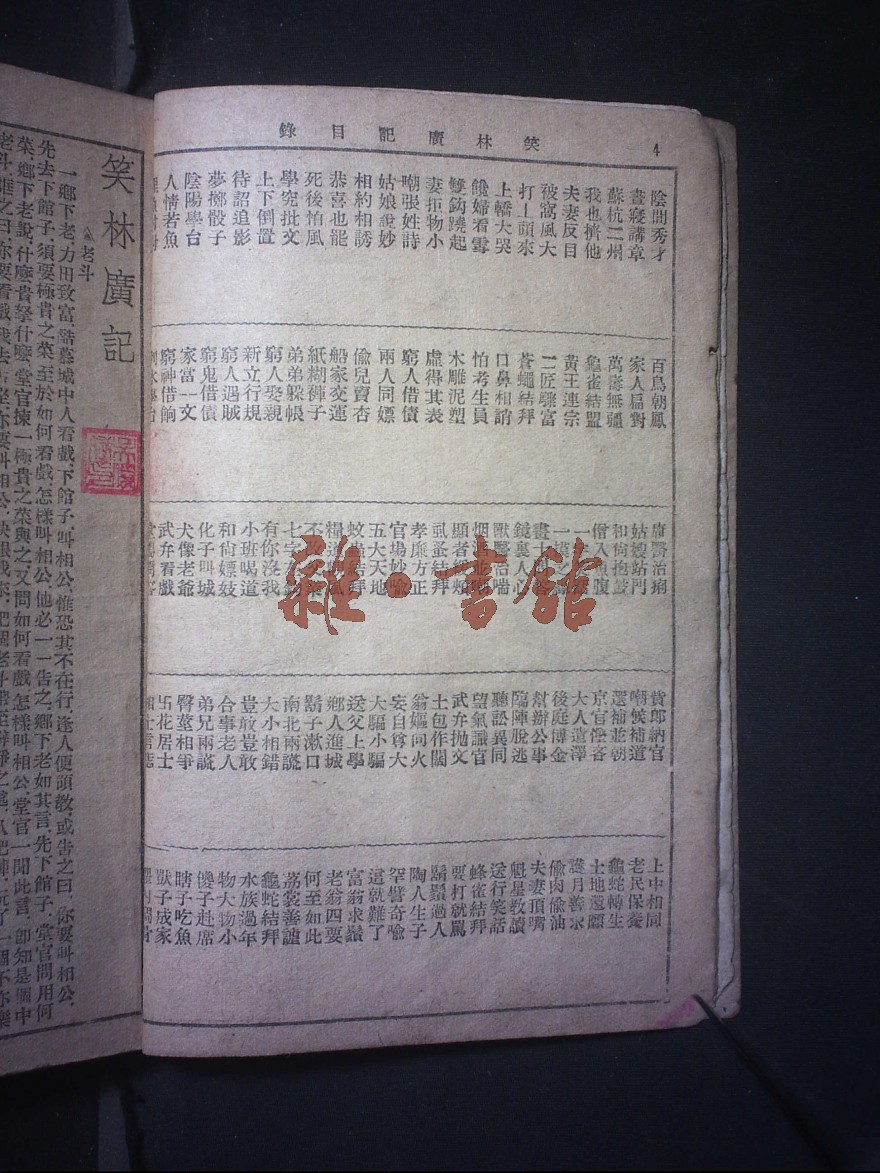 笑林廣記目錄
4
陰間秀才
晝寢講章
蘇杭二州
我也擠他
夫妻反目
被窩風大
打上頭來
上轎大哭
饞婦看雪
雙鈎蹺起
妻拒物小
嘲張姓詩
姑娘說妙
相約相誘
恭喜也罷
死後怕風
學究批文
上下倒置
待詔追影
夢擲骰子
陰陽學台
人情若魚
百鳥朝鳳
家人扁對
萬壽無疆
龜雀結盟
黃王連宗
二匠驟富
蒼蠅結拜
口鼻相誚
怕考生員
木雕泥塑
虛得其表
窮人借債
兩人同嫖
偷兒賣杏
船家交運
紙糊褲子
弟弟躲帳
窮人娶親
新立行規
窮人遇賊
窮鬼借債
家當一文
窮神借餉
庸醫治痢
姑嫂站門
和尚抱鼓
僧入頭腹
鏡裏人心
獸醫治喘
虱蚤結拜
孝廉方正
官場妙喻
五大天地
蚊蟲結拜
有你沒我
小班喝道
和尚嫖妓
化子叫城
犬像老爺
武弁看戲
貲郎納官
嘲候補道
選補並朝
京官慳吝
大人遺澤
後庭博金
幫辦公事
臨陣脫逃
聽訟異同
望氣識官
武弁拋文
土包作闊
翁嫗同火
妄自尊大
大騙小騙
送父上學
鄉人進城
鬍子漱口
南北兩謊
大小相錯
豈敢豈敢
合事老人
弟兄兩謊
臀莖相爭
五花居士
上中相同
老民保養
龜蛇轉生
土地還願
護月善求
偷肉偷油
夫妻頂嘴
魁星教讀
送行笑話
蜂雀結拜
要打就罵
鬍鬚過人
陶人生子
罕譬奇喻
這就難了
富翁求鬚
老翁四要
何至如此
荔裳善謔
龜蛇結拜
水族過年
物大物小
傻子赴席
瞎子吃魚
獃子成家
笑林廣記
老斗
一鄉下老，力田致富，誥墓城中人看戲，下館子，叫相公，惟恐其不在行，逢人便領教，或告之曰，你要叫相公，
先去下館子，須要極貴之菜，至於如何看戲，怎樣叫相公，他必一一告之，鄉下老如其言，先下館子，堂官問用何
菜，鄉下老說，什麼貴拏什麼，堂官揀一極貴之菜與之，又問如何看戲，怎樣叫相公，堂官一聞此言，卽知是個中
雜·書館